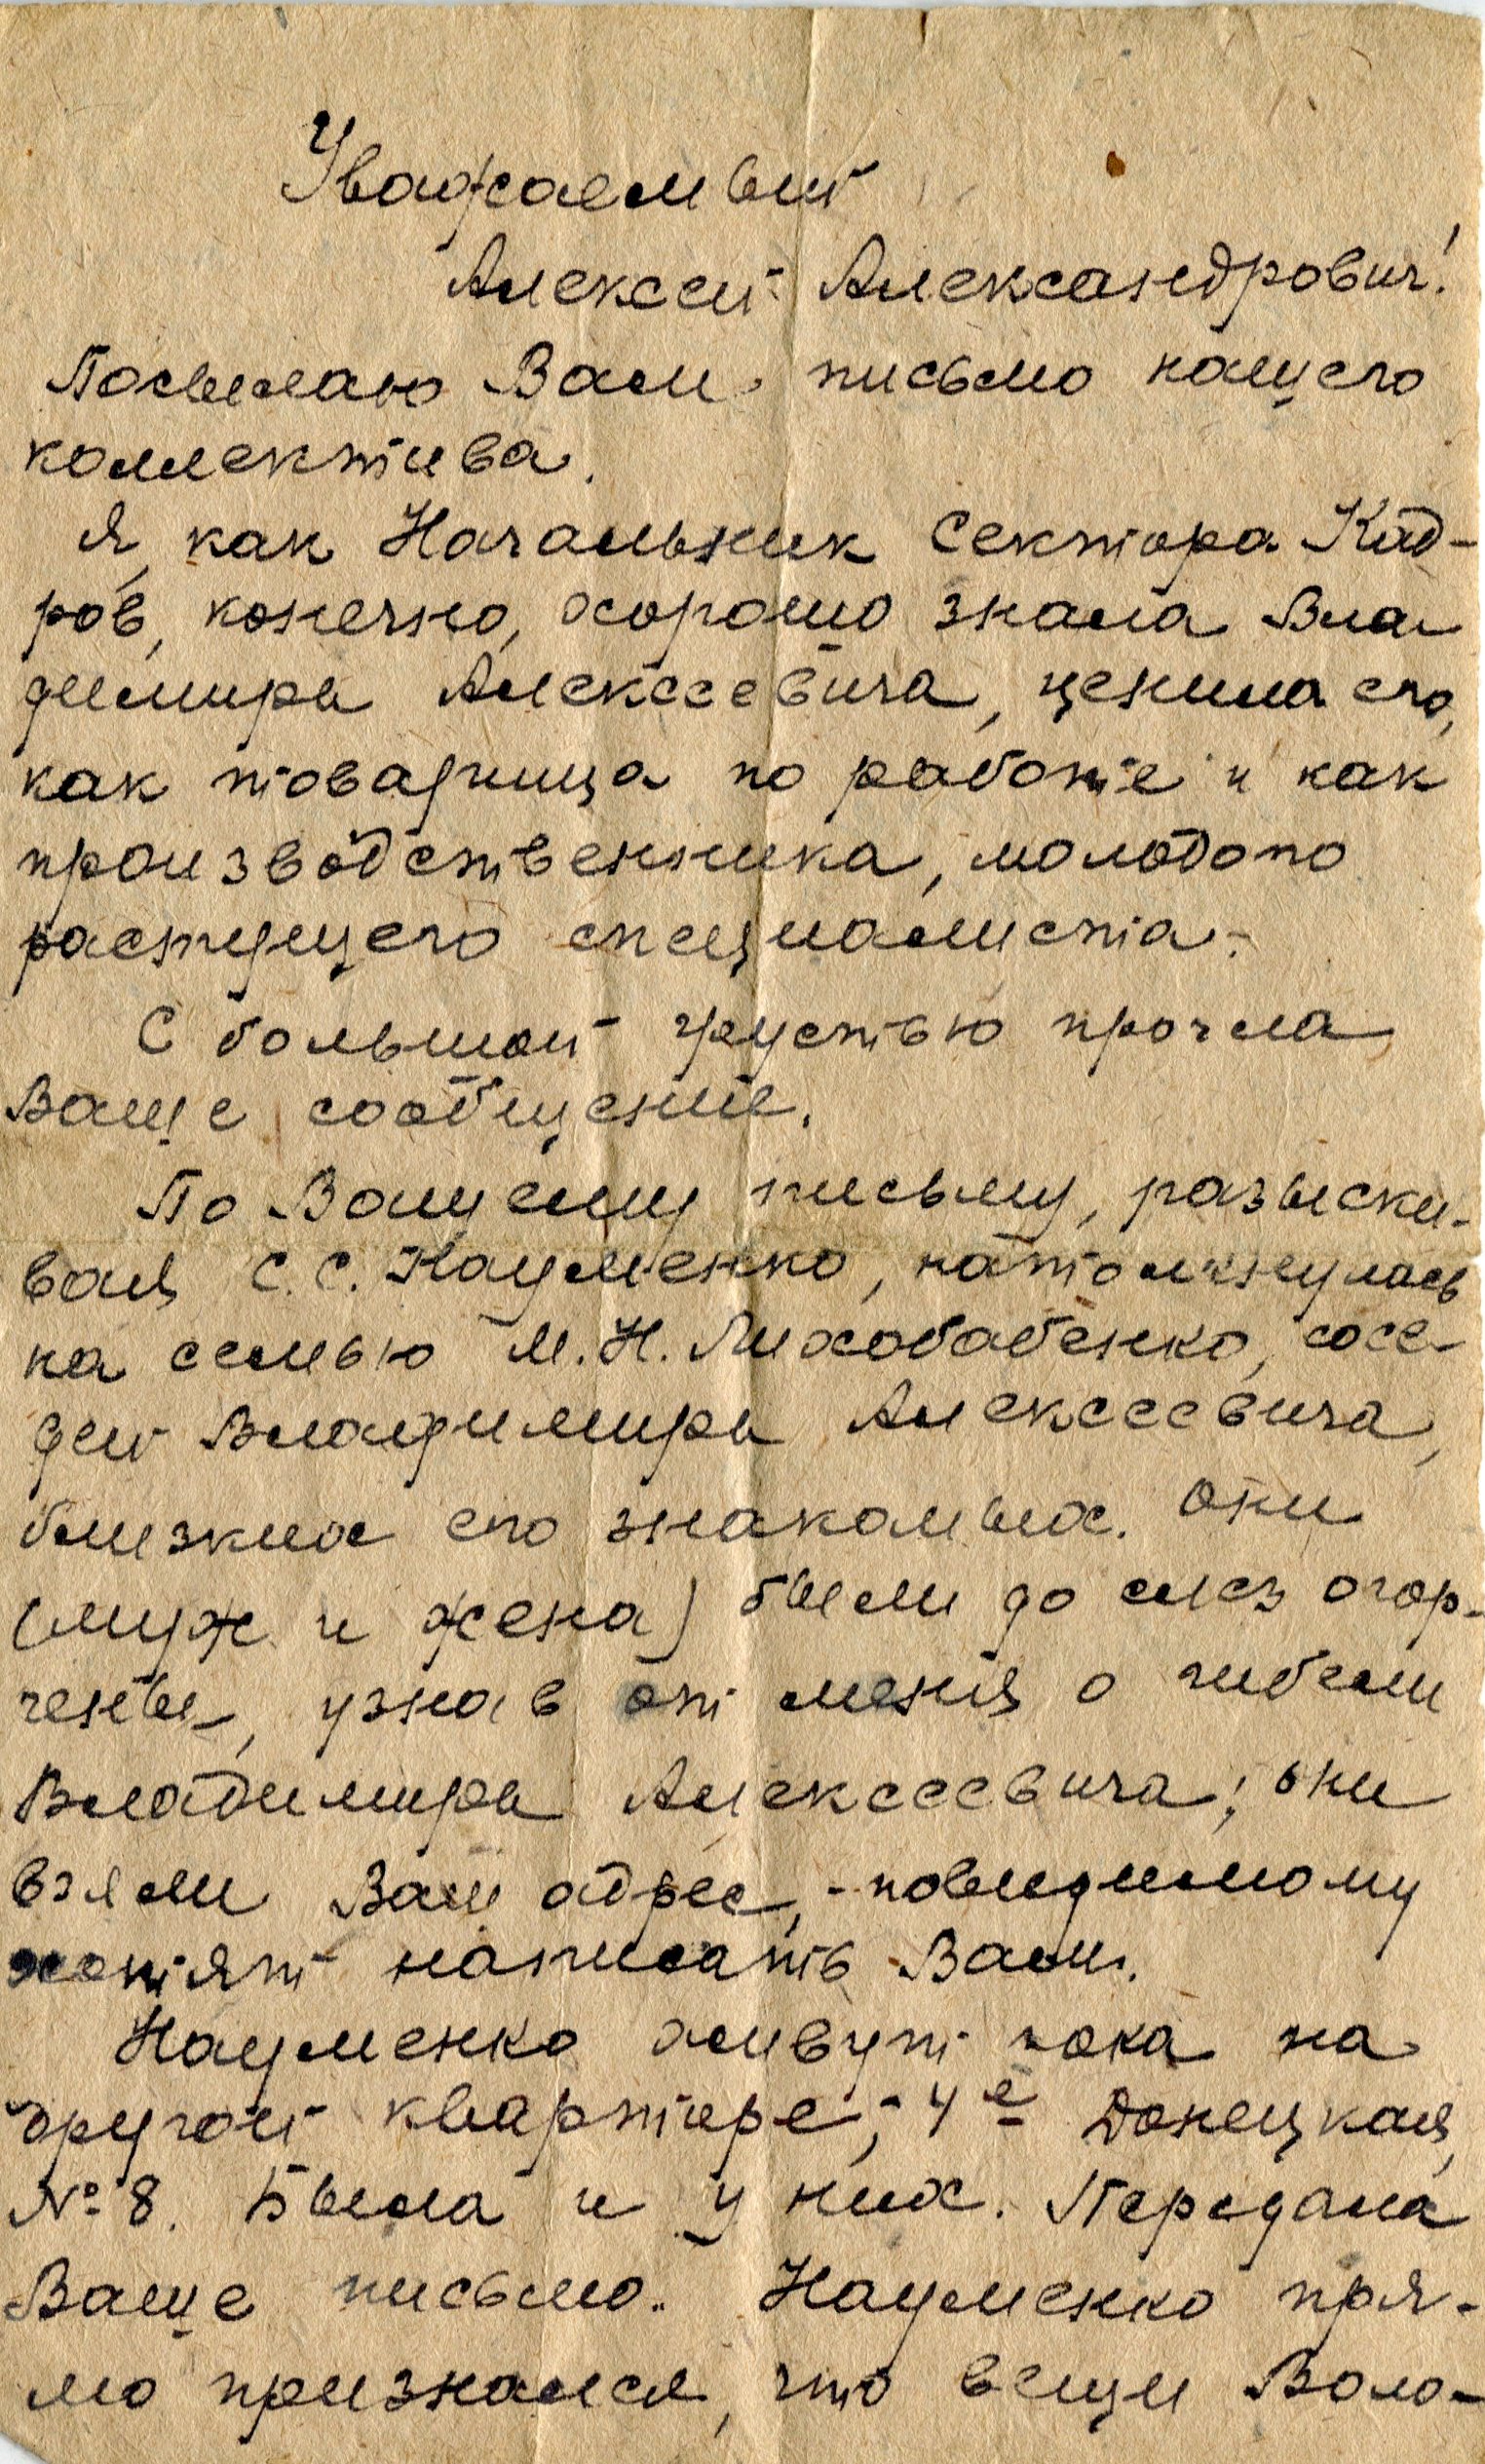 Уважаемый
Алексей Александрович!
Посылаю Вам письмо нашего
коллектива.
Я, как Начальник Сектора Кад-
ров, конечно, хорошо знала Вла-
димира Алексеевича, ценила его,
как товарища по работе и как
производственника, молодого
растущего специалиста.
С большой грустью прочла
Ваше сообщение.
По Вашему письму, разыски-
вая С.С. Науменко, натолкнулась
на семью М.Н. Лихобабенко, сосе-
дей Владимира Алексеевича,
близких его знакомых. Они
(муж и жена) были до слез огор-
чены, узнав от меня о гибели
Владимира Алексеевича; они
взяли Ваш адрес, - повидимому
хотят написать Вам.
Науменко живут пока на
другой квартире, - 4е Донецкая,
№ 8. Была и у них. Передала
Ваше письмо. Науменко пря-
мо признался, что вещи Воло-